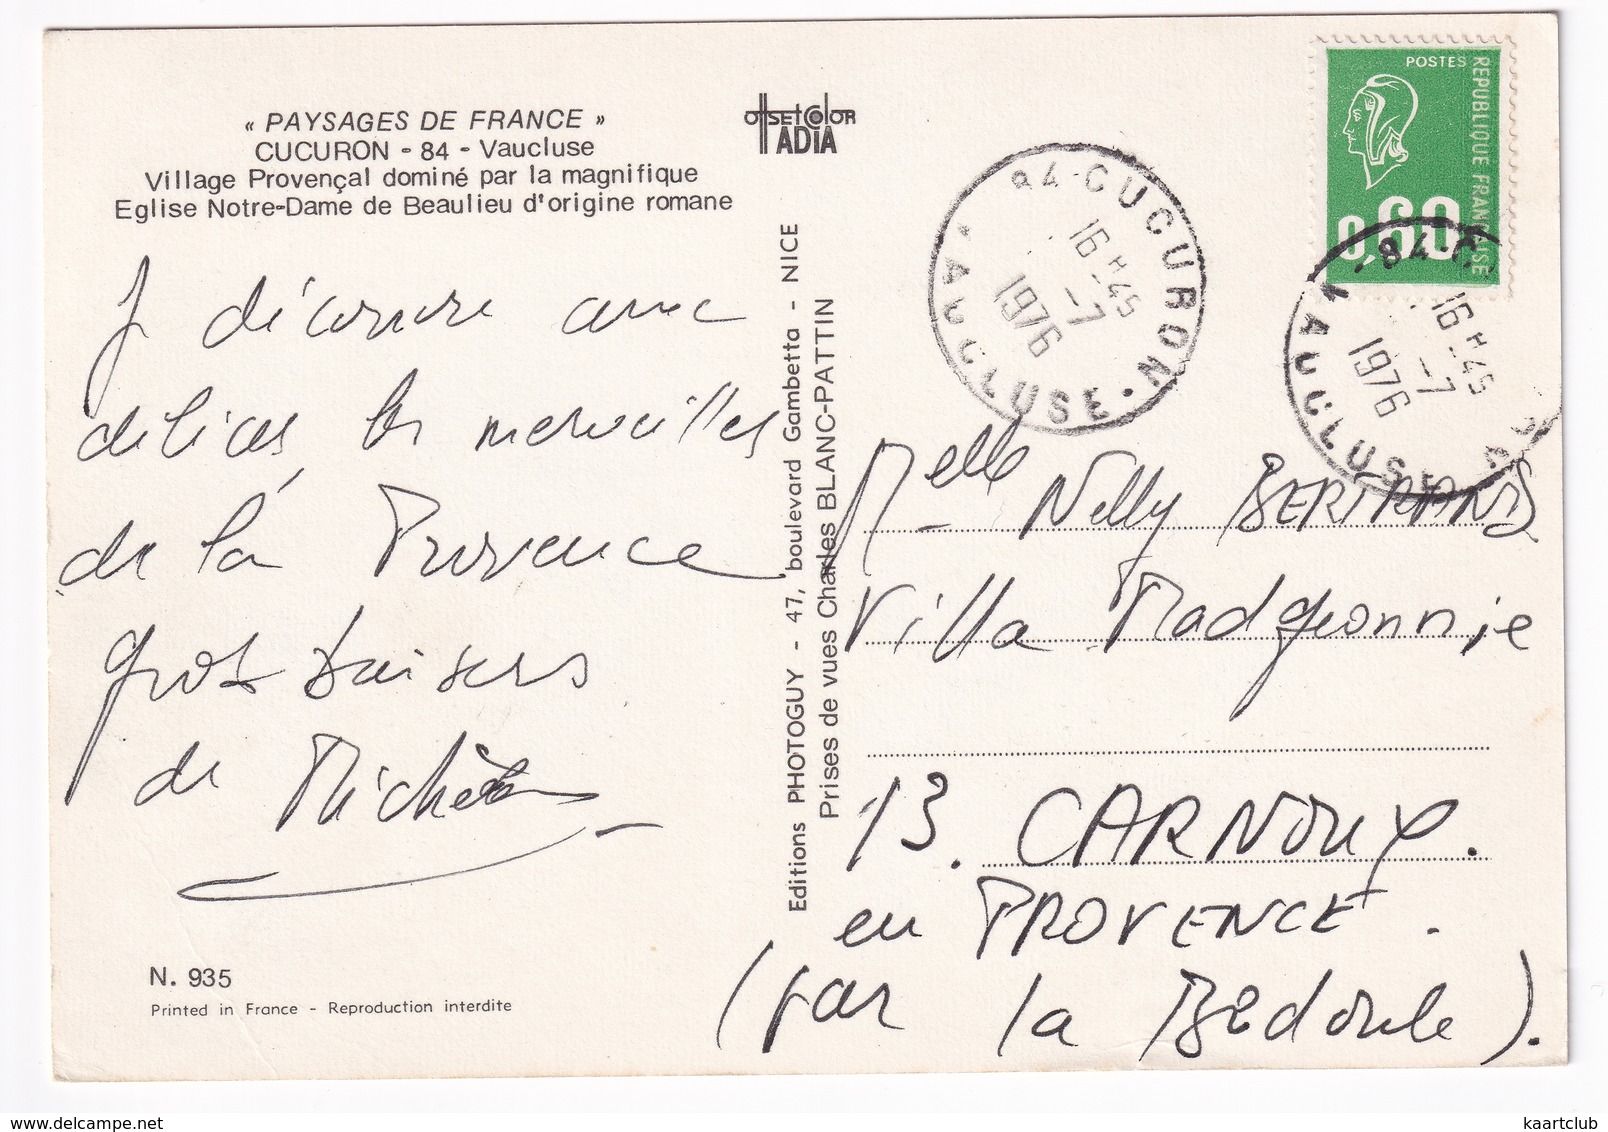 « PAYSAGES DE FRANCE »
CUCURON - 84 - Vaucluse
Village Provençal dominé par la magnifique
Eglise Notre-Dame de Beaulieu d'origine romane
J découvre avec
délices les merveilles
de la Provence
gros baisers
de Michèle
N. 935
Printed in France - Reproduction interdite
OffsetColor
ADIA
Editions PHOTOGUY - 47, boulevard Gambetta - NICE
Prises de vues Charles BLANC-PATTIN
84 CUCURON
16 H -45
-7
1976
VAUCLUSE
POSTES
REPUBLIQUE FRANÇAISE
0,60
84
16 H -45
-7
1976
VAUCLUSE
Melle Nelly BERTRAND
Villa Madgeonnie
13. CARNOUX.
en PROVENCE.
(par la Bédoule).
kaartclub